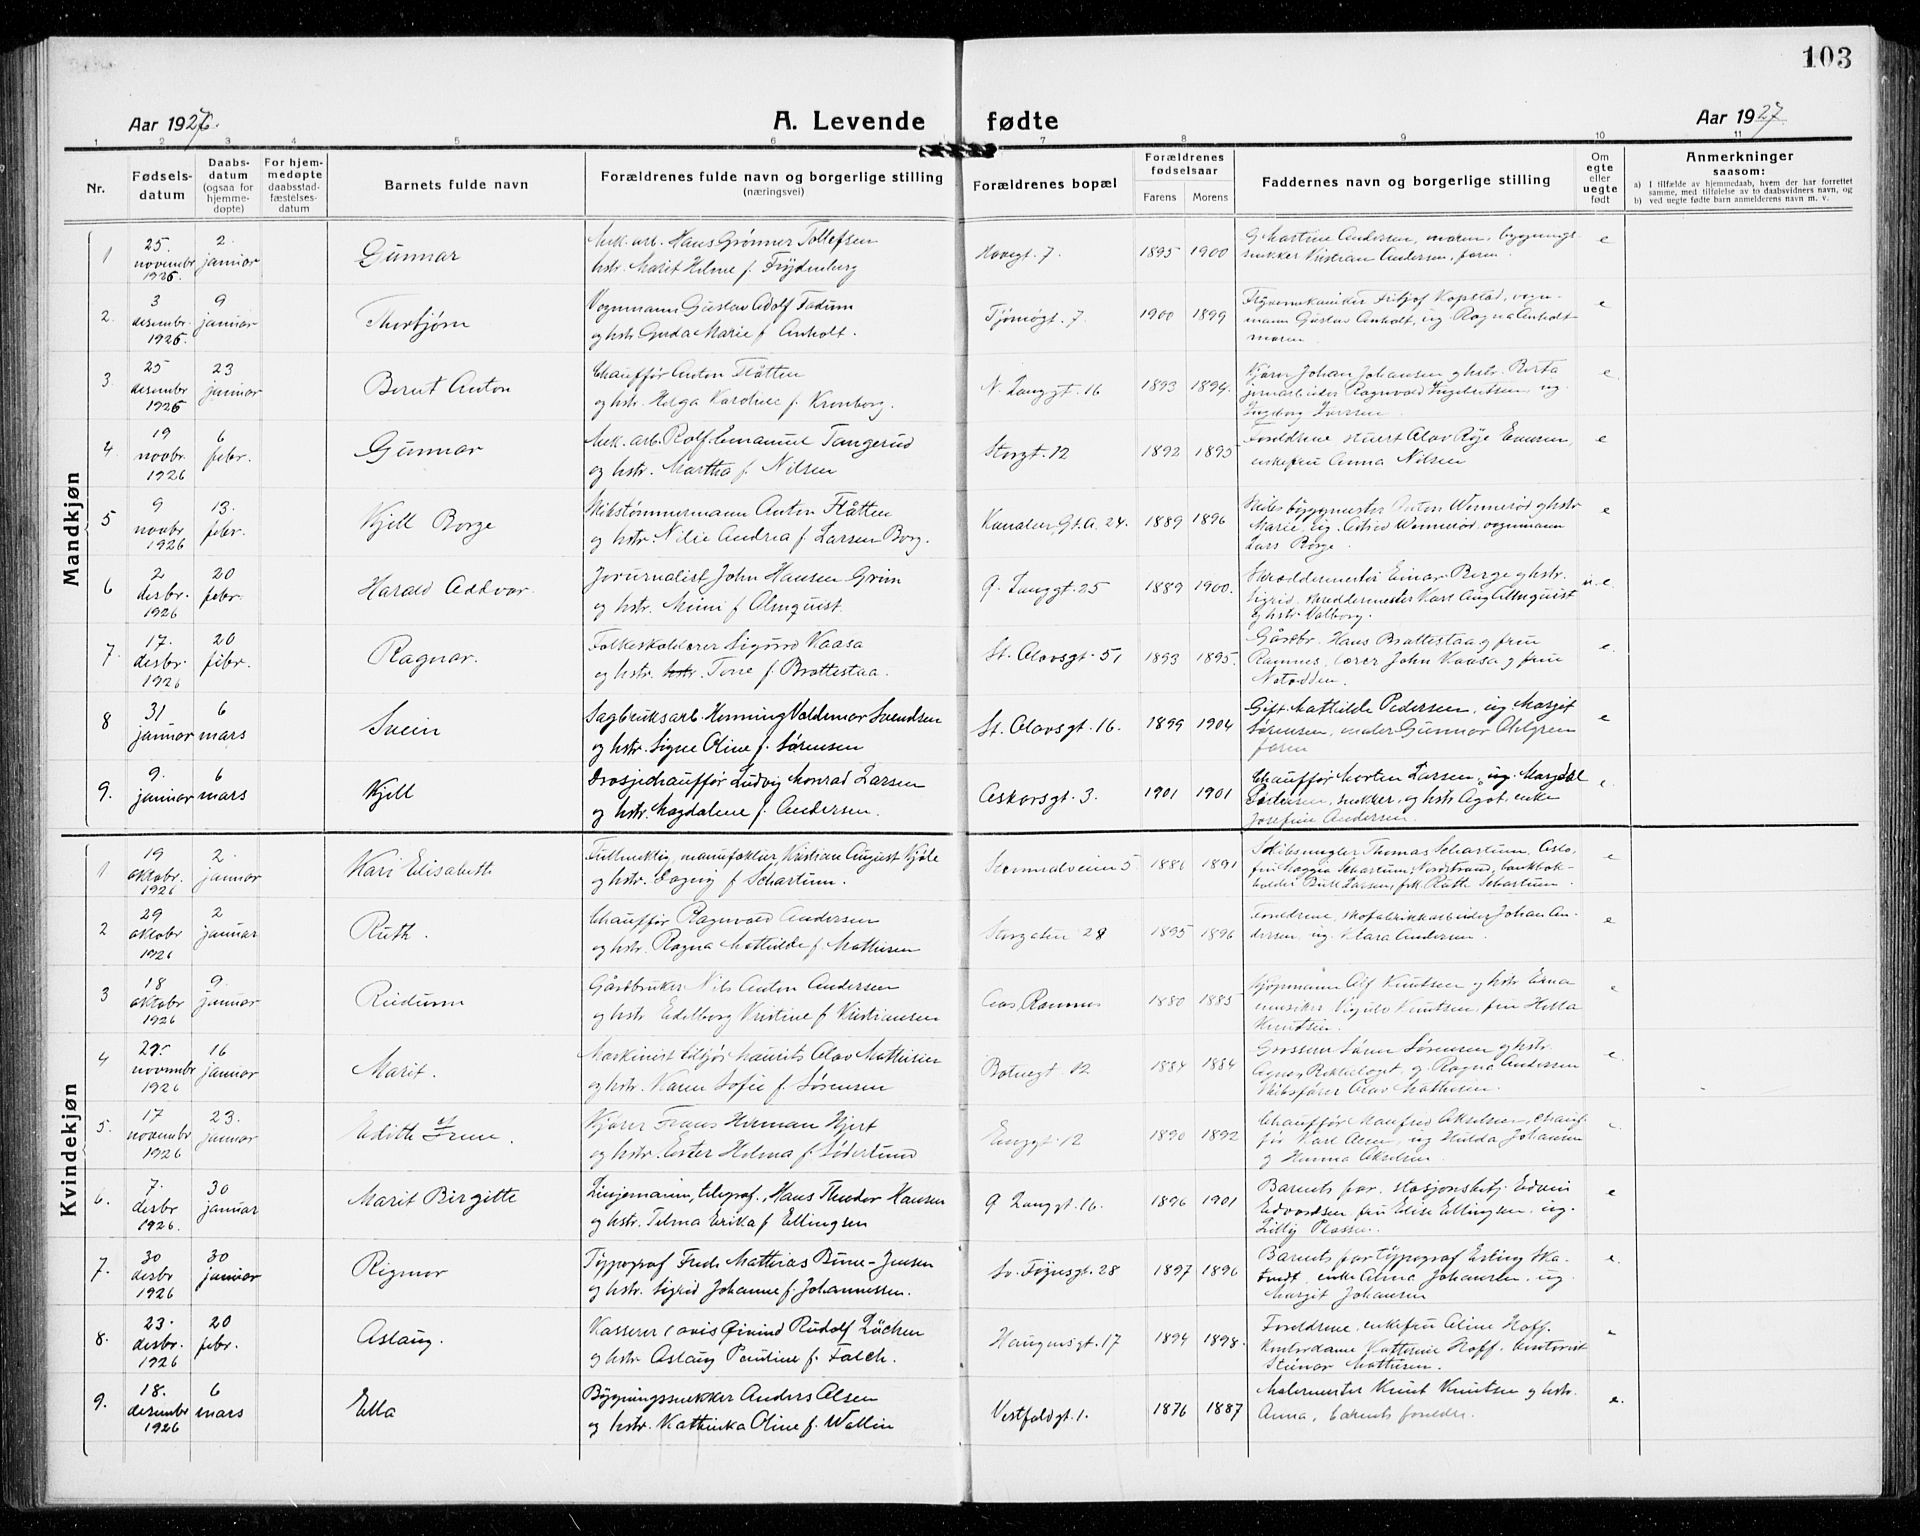 103
Aar 1927.
A. Levende fødte
Aar 1927.
1 2 3 4 5 6 7 8 9 10 11
Nr.
Fødselsdatum
Daabsdatum (ogsaa for hjemmedøpte)
For hjemmedøpte daabsstadfæstelsesdatum
Barnets fulde navn
Forældrenes fulde navn og borgerlige stilling (næringsvei)
Forældrenes bopæl
Forældrenes fødselsaar
Farens Morens
Faddernes navn og borgerlige stilling
Om egte eller uegte født
Anmerkninger saasom:
a) I tilfælde av hjemmedaab, hvem der har forrettet samme, med tilføielse av to daabsvidners navn, og
b) ved uegte fødte barn anmelderens navn m. v.
Mandkjøn
1 25. novembr 1926. 2. januar Gunnar
Mek. arb. Hans Grønner Tollefsen
hstr. Marit Helme f. Frydenberg
Hovegt. 7. 1895 1900
G Martine Andersen, moren, bygnings
snekker Kristian Andersen, faren. e
2. 3 desembr. 1926. 9 januar Thorbjørn
Vognmann Gustav Adolf Fadum
og hstr. Gerda Marie f Anholt.
Tjømøgt. 7 1900 1899
Fritjof Kopstad, vogn-
mann Gustav Anholt, ug. Ragna Anholt
moren e
3. 25 desembr 1926 23 januar Bernt Anton
Chauffør Anton Flåtten
og hstr. Helga Karoline f. Kronborg.
N. Langgt. 16 1893 1894.
Kjører Johan Johansen og hstr. Berta
jernarbeider Ragnvald Ingebretsen, ug
Ingeborg Larssen. e.
4 19 novbr. 1926 6 febr. Gunnar
Mek. arb. Rolf Emanuel Tangerud
og hstr. Martha f. Nilsen
Storgt. 12 1892 1895
Foreldrene stuert Olav Røje Evensen,
enkefru Anna Nilsen e
5 9 novbr 1926 13. febr. Kjell Borge
Skibstømmermann Anton Flåtten
og hstr. Nilie Andrea f Larsen Borg.
Kanalen, Gt. A. 24. 1889 1896
Skibsbyggmester Anton Wennerød og hstr
Marie, ug. Astrid Wennerød, vognmann
Lars Borge. e
6 2 desbr. 1926 20 febr. Harald Oddvar.
Jorurnalist John Hansen Grim
og hstr. Mimi f Almquist.
Ø. Langgt. 25 1889 1900.
Skreddermester Einar Berge og hstr.
Sigrid, skreddermester Karl Aug Almquist
og hstr Valborg. u. e.
7. 17. desbr. 1926 20 febr. Ragnar.
Folkeskolelærer Sigurd Kaasa
og hstr. hstr. Tone f. Brattestaa.
St. Olavsgt. 51 1893 1895.
Gårdbr. Hans Brattestaa og frue
Ramnes, lærer John Kaasa og frue
Notodden. e.
8 31 januar 6 mars Svein
Sagbruksarb. Henning Valdemar Svendsen
og hstr. Signe Oline f. Sørensen
St. Olavsgt. 16. 1899 1904
Gift Mathilde Pedersen, ug Margit
Sørensen, maler Gunnar Ahlgren
faren e
9. 9. januar 6 mars Kjell
Drosjechauffør Ludvig Monrad Larsen
og hstr. Magdalene f. Andersen.
Askorsgt. 3. 1901 1901
Chauffør Morten Larsen, ug. Margdal
Pedersen, snekker, og hstr Agot, enke
Josefine Andersen. e.
Kvindekjøn
1 19 oktobr. 1926 2. januar Kari Elisabeth
Fullmektig, manufaktur, Kristian August Kjøle
og hstr. Dagny f Schartum.
5 1886 1891
Skibsmegler Thomas Schartum, Oslo,
fru Maggie Schartum, Nordstrand, bankbok-
holder Larsen, frk. Ruth Schartum. e
2 29 oktobr 1926 2 januar Ruth.
Chauffør Ragnvald Andersen
og hstr. Ragna Mathilde f. Mathisen
Storgaten 28 1895 1896
Foreldrene, skofabrikkarbeider Johan An-
dersen, ug. Klara Andersen. e
3 18 oktobr 1926 9. januar Reidunn
Gårdbruker Nils Anton Andersen
og hstr Edelborg Kristine f Kristiansen
Aas, Ramnes 1880 1885
Kjøpmann Alf Knutsen og hstr Erna
musiker Knutsen, fru Hilla
Knutsen. e
4 29. novembr 1926 16 januar Marit.
Maskinist tilsjøs Maurits Olav Mathisen
og hstr. Karen Sofie f. Sørensen
Botnegt 12 1884 1884
Grosserer Søren Sørensen og hstr.
Agnes, og Ragna Andersen
Skibsfører Olav Mathisen. e.
5. 17 novembr 1926 23. januar Edith Irene.
Kjører Frans Herman Hjert
og hstr. Ester Helma f. Søderlund
Enggt. 12 1890 1892
Chauffør Manfred Akselsen, chauf-
før Karl Olsen, ug Hilda Johansen
og Hanna Akselsen.
6. 7. desbr 1926. 30 januar Marit Birgitte
Linjemann, telegraf., Hans Theodor Hansen
og hstr. Telma Erika f Ellingsen
Ø Langgt. 16. 1896 1901
Barnets far, stasjonsbetj. Edvin
Edvardsen, fru Elise Ellingsen, ug.
Lilly Plassen. e
7. 30 desbr 1926 30 januar Rigmor
Typograf Fredr. Mathias Bune-Jensen
og hstr. Sigrid Johanne f. Johannessen.
Sv. Føynsgt. 28 1897 1896
Barnets far typograf Erling Ska-
, enke Alma Johansen, ug.
Margit Johansen e.
8. 23. desbr. 1926 20 febr. Aslaug.
Kasserer i avis Øivind Rudolf Løchen
og hstr. Aslaug Pauline f. Falch.
Haugeusgt. 17 1894 1898.
Foreldrene, enkefru Aline Hoff.
Kathrine Hoff, kontorist
Steinar Mathisen.
9. 18. desembr 1926 6 mars Ella
Bygningssnekker Anders Olsen
og hstr. Kathinka Oline f. Wallin
Vestfoldgt. 1. 1876 1887
Malermester Knut Knutsen og hstr.
Anna, barnets foreldre. e.